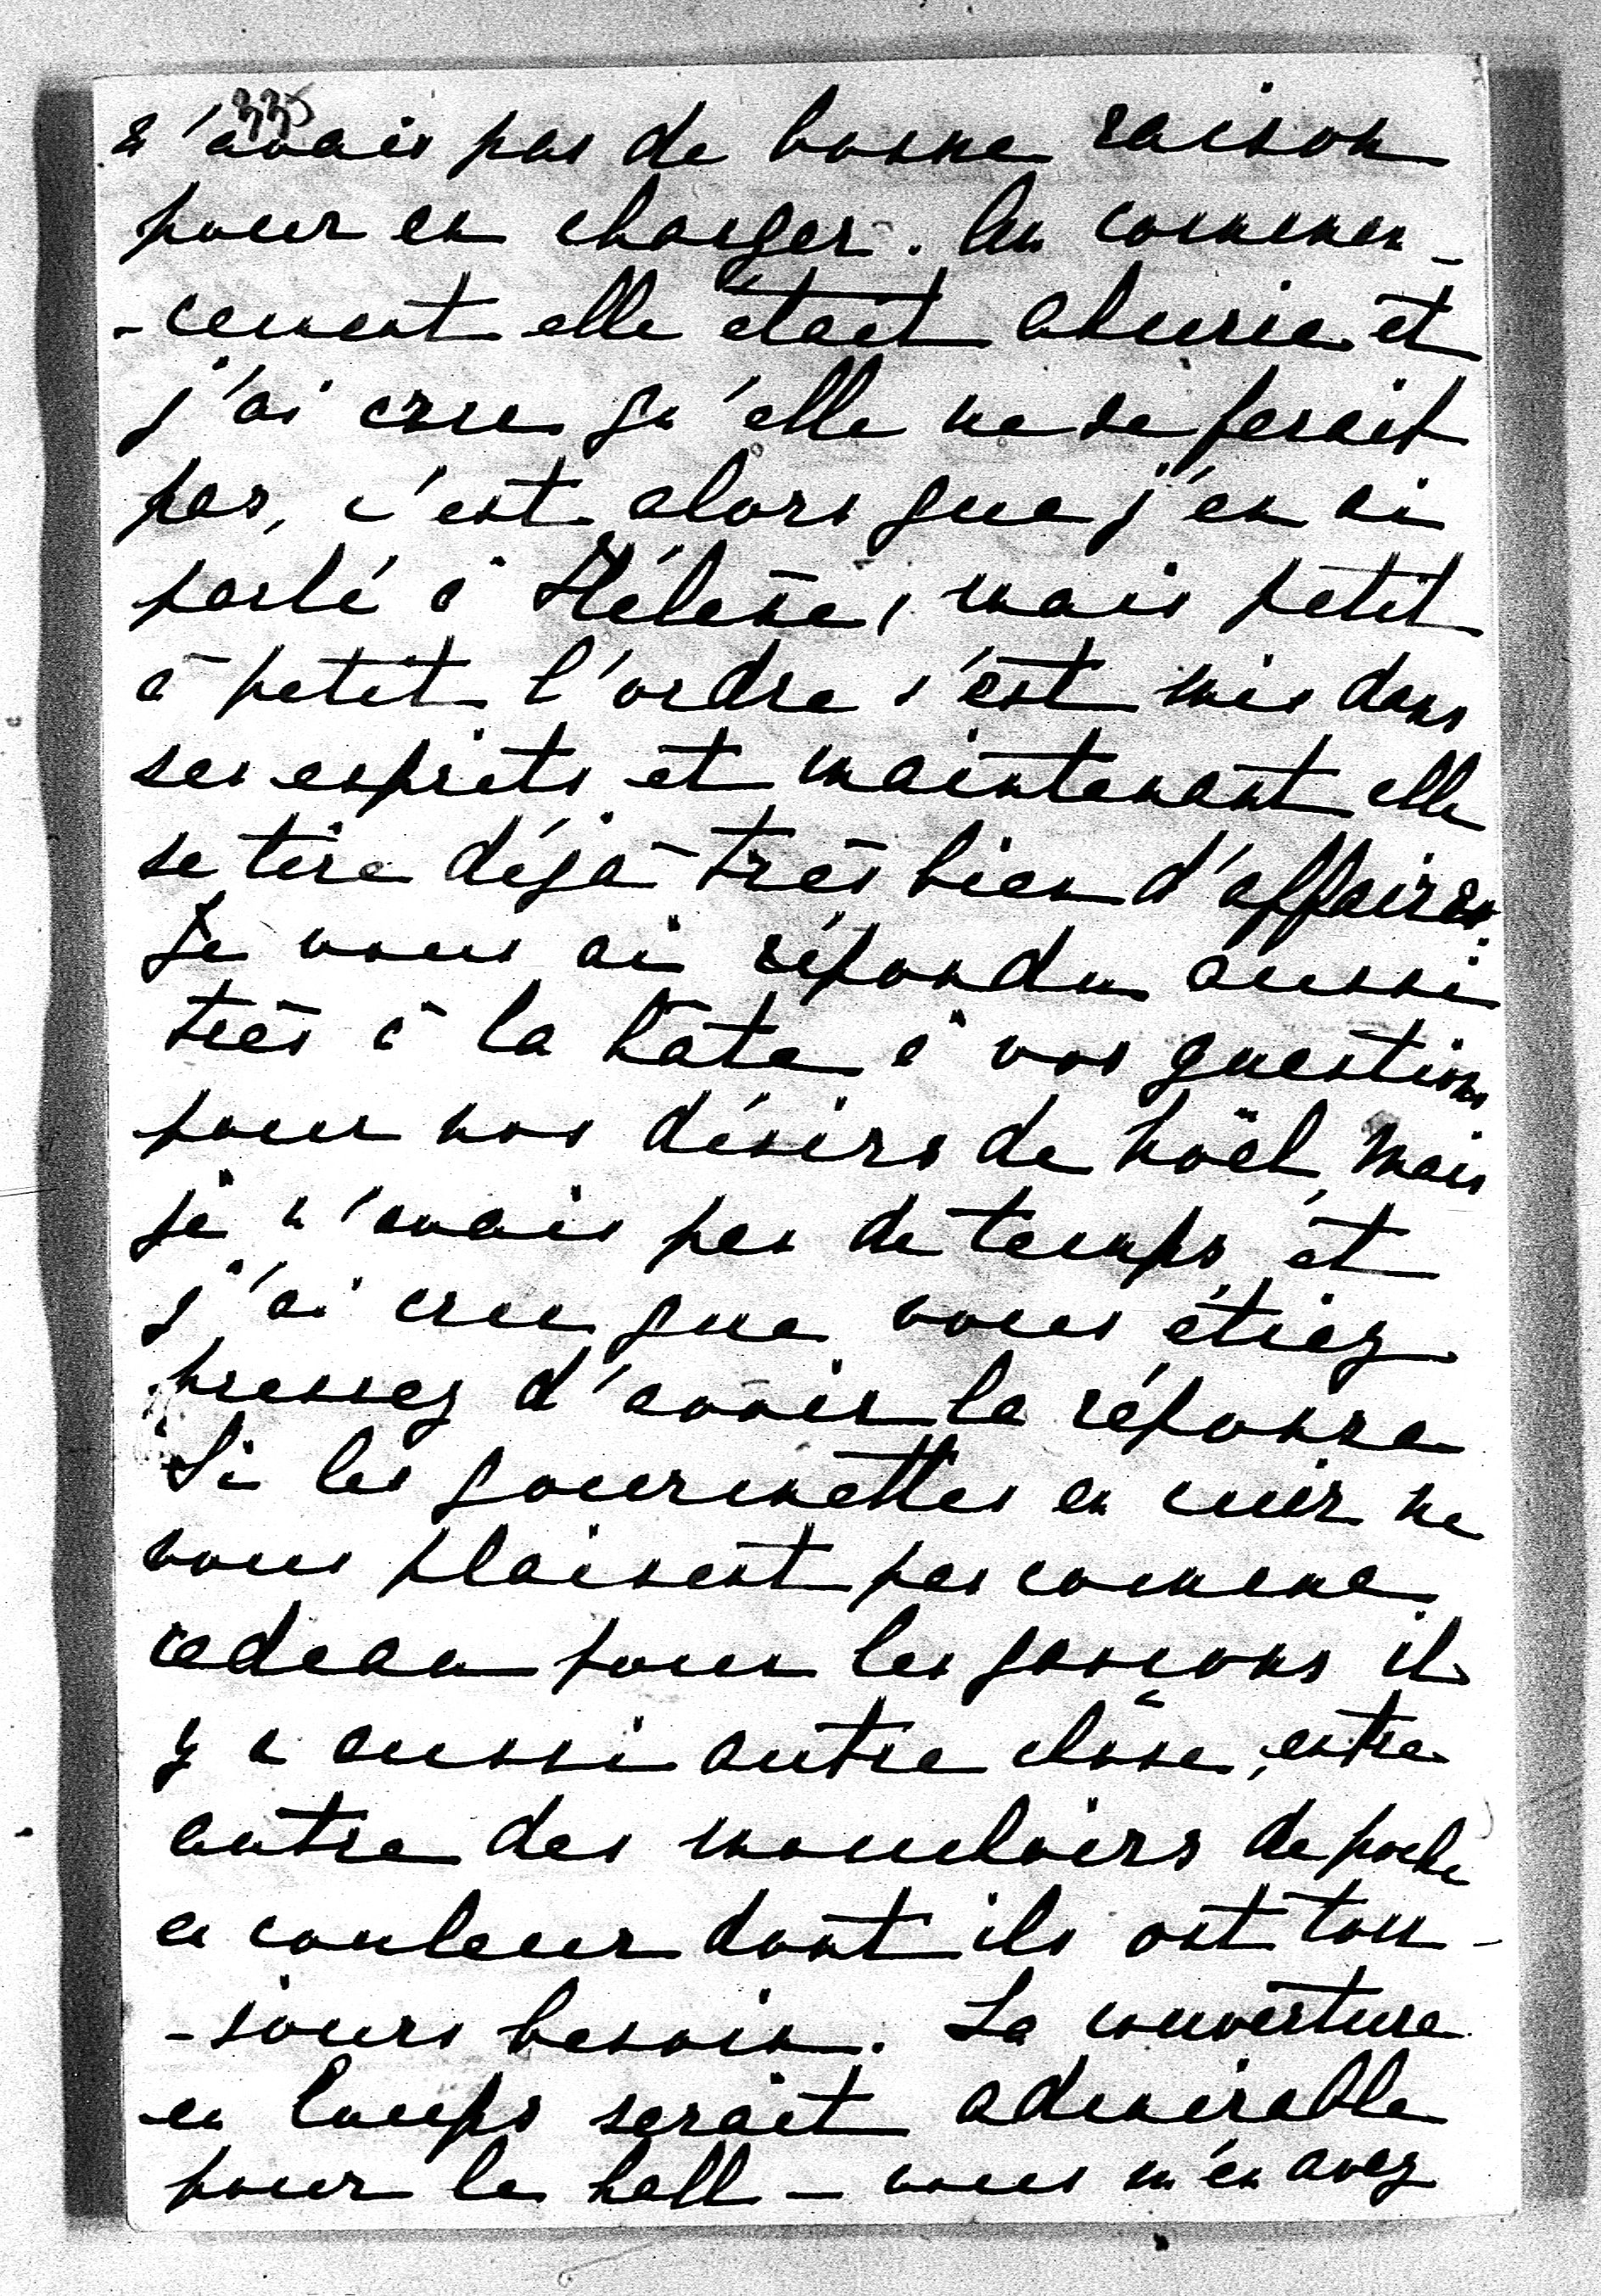 335
n'avais pas de bonne raison
pour en changer. Au commen-
-cement elle était ahurie et
j'ai cru qu'elle ne se ferait
pas, c'est alors que j'en ai
parlé à Hélène, mais petit
à petit l'ordre s'est mis dans
ses esprits et maintenant elle
se tire déjà très bien d'affaires.
Je vous ai répondu aussi
très à la hâte à vos questions
pour nos désirs de Noël, mais
je n'avais pas de temps et
j'ai cru que vous étiez
pressez d'avoir la réponse
Si les gourmettes en cuir ne
vous plaisent pas comme
cadeau pour les garçons il
y a aussi autre chose, entre
autre des mouchoirs de poche
en couleur dont ils ont tou-
-jours besoin. La couverture
en loups serait admirable
pour le hall – vous m'en avez